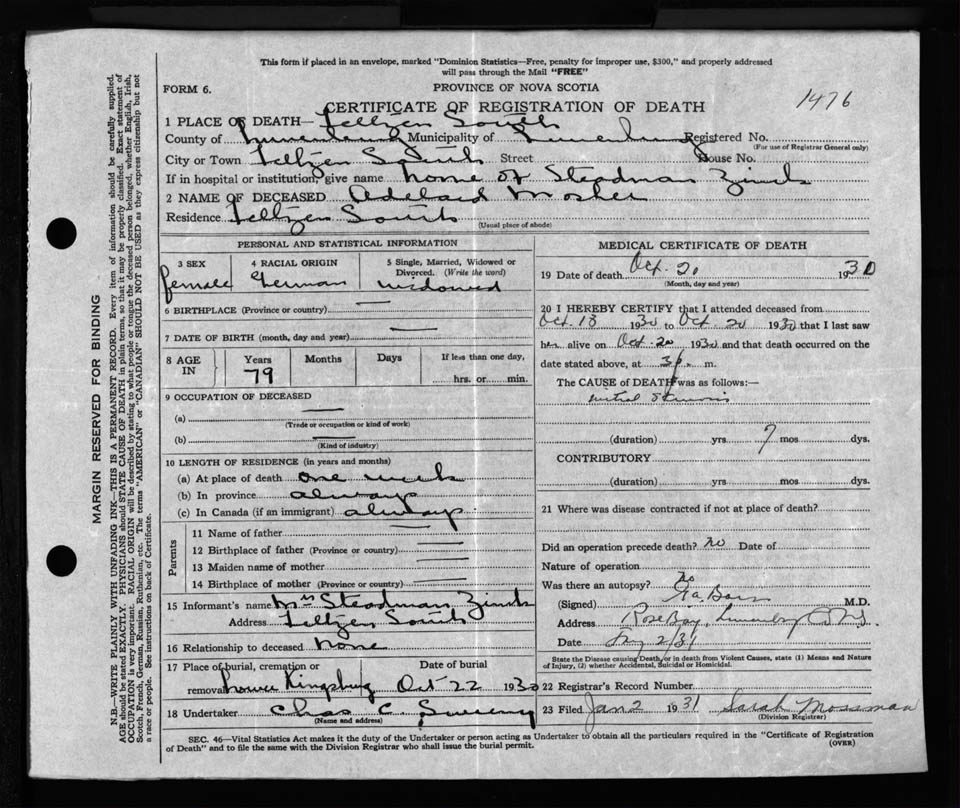 This form if placed in an envelope, marked "Dominion Statistics—Free, penalty for improper use, $300," and properly addressed
will pass through the Mail "FREE"
FORM 6.
PROVINCE OF NOVA SCOTIA
1476
CERTIFICATE OF REGISTRATION OF DEATH
1 PLACE OF DEATH— Feltzen South
County of Lunenburg Municipality of Lunenburg Registered No.
(For use of Registrar General only)
City or Town Feltzen South Street House No.
If in hospital or institution, give name home of Steadman Zinck
2 NAME OF DECEASED Adelaid Mosher
Residence Feltzen South
(Usual place of abode)
PERSONAL AND STATISTICAL INFORMATION
3 SEX
female
4 RACIAL ORIGIN
German
5 Single, Married, Widowed or
Divorced. (Write the word)
widowed
6 BIRTHPLACE (Province or country) —
7 DATE OF BIRTH (month, day and year) —
8 AGE IN
Years
79
Months
Days
If less than one day,
hrs. or min.
9 OCCUPATION OF DECEASED
(a) —
(Trade or occupation or kind of work)
(b) —
(Kind of industry)
10 LENGTH OF RESIDENCE (in years and months)
(a) At place of death one week
(b) In province always
(c) In Canada (if an immigrant) always
Parents
11 Name of father —
12 Birthplace of father (Province or country) —
13 Maiden name of mother —
14 Birthplace of mother (Province or country) —
15 Informant's name Mrs Steadman Zinck
Address Feltzen South
16 Relationship to deceased none
17 Place of burial, cremation or
Date of burial
removal Lower Kingsburg Oct 22 1930
18 Undertaker Chas C. Sweeny
(Name and address)
MEDICAL CERTIFICATE OF DEATH
19 Date of death Oct. 20 1930
(Month, day and year)
20 I HEREBY CERTIFY that I attended deceased from
Oct. 18 1930 to Oct 20 1930 that I last saw
her alive on Oct. 20 1930 and that death occurred on the
date stated above, at 3 p. m.
The CAUSE of DEATH was as follows:—
mitral stenosis
(duration) yrs ? mos dys.
CONTRIBUTORY
(duration) yrs mos dys.
21 Where was disease contracted if not at place of death?
Did an operation precede death? no Date of
Nature of operation
Was there an autopsy? no
(Signed) M.D.
Address Rose Bay, Lunenburg Co N.S.
Date 2/31
State the Disease causing Death, or in death from Violent Causes, state (1) Means and Nature
of Injury, (2) whether Accidental, Suicidal or Homicidal.
22 Registrar's Record Number
23 Filed Jan 2 1931 Sarah Mossman
(Division Registrar)
SEC. 46—Vital Statistics Act makes it the duty of the Undertaker or person acting as Undertaker to obtain all the particulars required in the "Certificate of Registration
of Death" and to file the same with the Division Registrar who shall issue the burial permit.
(OVER)
MARGIN RESERVED FOR BINDING
N.B.—WRITE PLAINLY WITH UNFADING INK—THIS IS A PERMANENT RECORD. Every item of information should be carefully supplied.
AGE should be stated EXACTLY. PHYSICIANS should STATE CAUSE OF DEATH in plain terms, so that it may be properly classified. Exact statement of
OCCUPATION is very important. RACIAL ORIGIN will be described by stating to what people or tongue the deceased person belonged, whether English, Irish,
Scotch, French, German, Russian, Ruthenian, etc. The terms "AMERICAN" or "CANADIAN" SHOULD NOT BE USED as they express citizenship but not
a race or people. See instructions on back of Certificate.